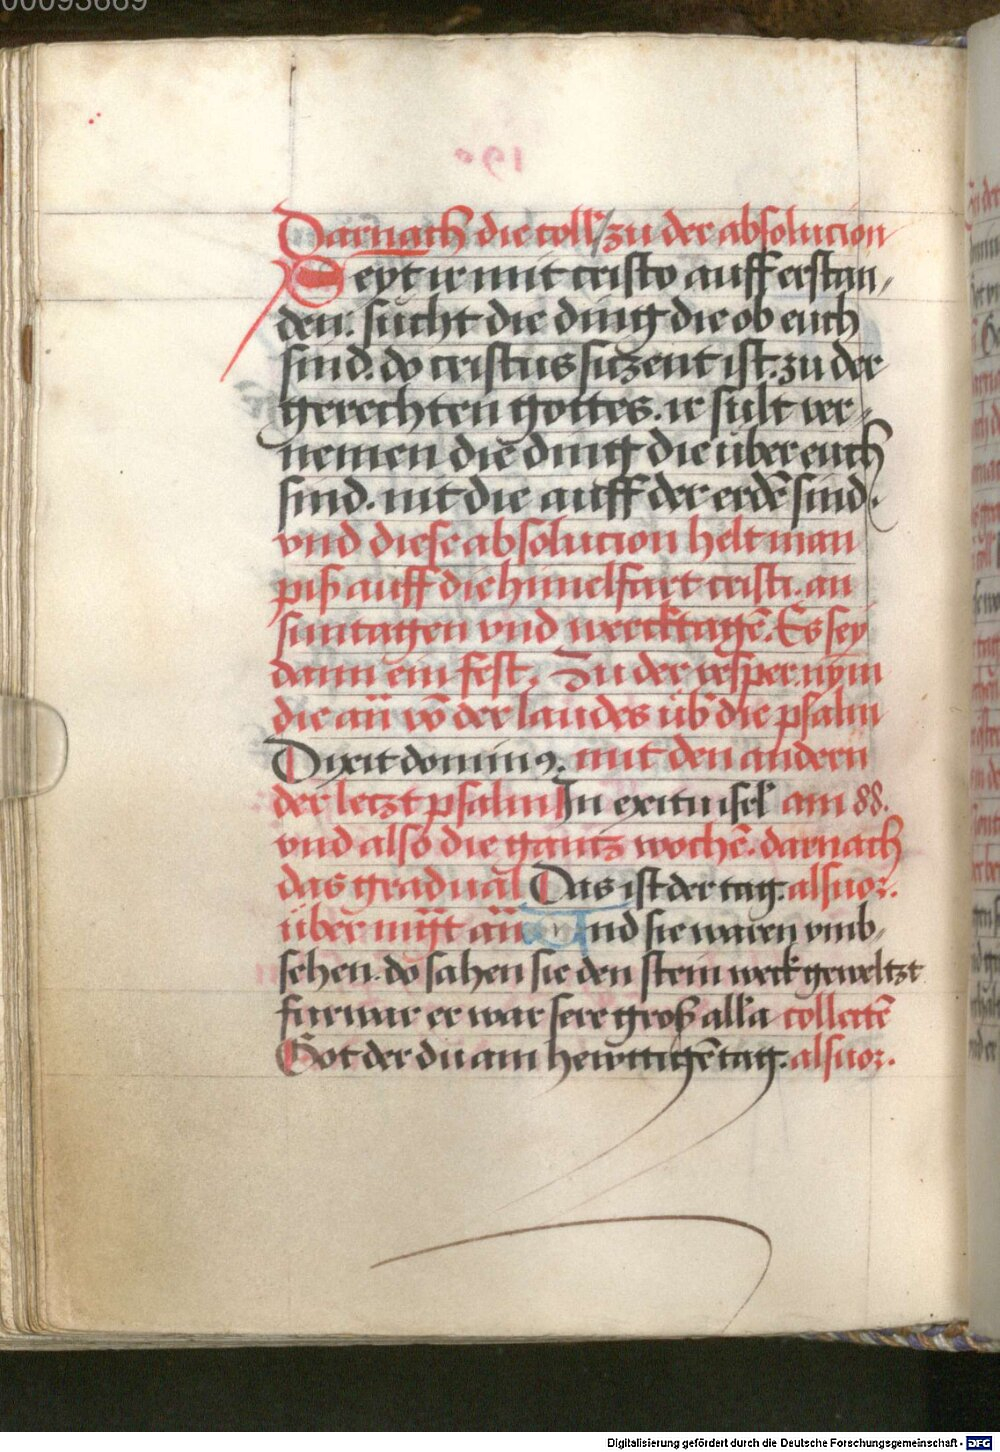 00093669
Darnach die coll'/ zu der absolucion
Seyt ir mit cristo auff erstan„
den: sucht die ding die ob euch
sind. do cristus siczent ist. zu der
gerechten gottes. ir sult ver„
nemen die ding die über euch
sind. nit die auff der erdē sind.
vnd diese absolucion helt man
piß auff die himelfart cristi. an
suntagen vnd wercktagē. Es sey
dann ein fest. Zu der vesper nym
die añ vō der laudes üb̄ die psalm
Dixit dominꝰ. mit den andern
der letzt psalm In exitu isƚ am 88.
vnd also die gantz wochē. darnach
das gradual Das ist der tag. als uoꝛ.
über mgt̄ añ Vnd sie waren vmb„
sehen. do sahen sie den stein weck geweltzt
furwar er war sere groß alƚa collectē
Got der du am hewttigē tag. als uoꝛ.
Digitalisierung gefördert durch die Deutsche Forschungsgemeinschaft - DFG